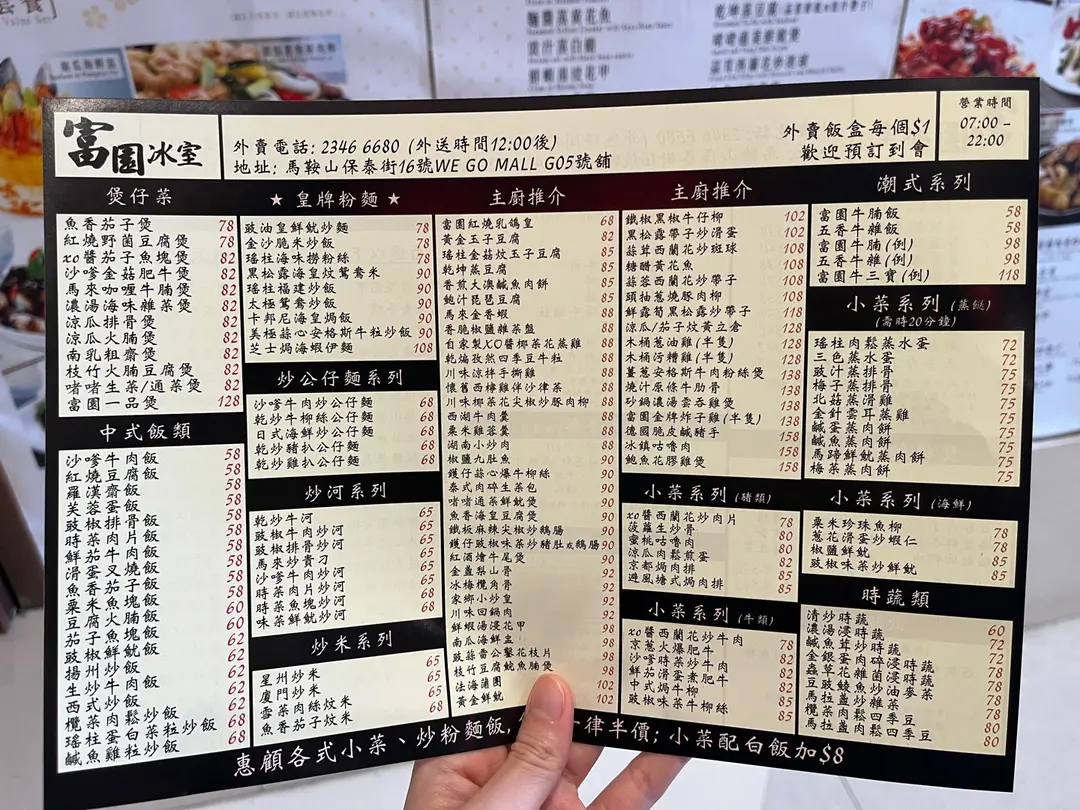 富園冰室
外賣電話: 2346 6680 (外送時間12:00後)
地址: 馬鞍山保泰街16號WE GO MALL G05號舖
外賣飯盒每個$1
歡迎預訂到會
營業時間
07:00 –
22:00
煲仔菜
魚香茄子煲 78
紅燒野菌豆腐煲 78
xo醬茄子魚塊煲 82
沙嗲金菇肥牛煲 82
馬來咖喱牛腩煲 82
濃湯海味雜菜煲 82
涼瓜排骨煲 82
涼瓜火腩煲 82
南乳粗齋煲 82
枝竹火腩豆腐煲 82
啫啫生菜/通菜煲 82
富園一品煲 128
中式飯類
沙嗲牛肉飯 58
紅燒豆腐飯 58
羅漢齋飯 58
芙蓉蛋飯 58
豉椒排骨飯 58
時菜肉片飯 58
鮮茄牛肉飯 58
滑蛋叉燒飯 58
魚香茄子飯 58
粟米魚塊飯 60
豆腐火腩飯 60
茄子魚塊飯 62
豉椒鮮魷飯 62
揚州炒飯 62
生炒牛肉飯 62
西式炒飯 62
欖菜肉鬆炒飯 68
瑤柱蛋白菜粒炒飯 68
鹹魚雞粒炒飯 68
★ 皇牌粉麵 ★
豉油皇鮮魷炒麵 78
金沙脆米炒飯 78
瑤柱海味撈粉絲 78
黑松露海皇炆鴛鴦米 90
瑤柱福建炒飯 90
太極鴛鴦炒飯 90
卡邦尼海皇焗飯 90
美極蒜心安格斯牛粒炒飯 90
芝士焗海蝦伊麵 108
炒公仔麵系列
沙嗲牛肉炒公仔麵 68
乾炒牛柳絲公仔麵 68
日式海鮮炒公仔麵 68
乾炒豬扒公仔麵 68
乾炒雞扒公仔麵 68
炒河系列
乾炒牛河 65
豉椒牛肉炒河 65
豉椒排骨炒河 65
馬來炒貴刁 65
沙嗲牛肉炒河 65
時菜肉片炒河 65
時菜魚塊炒河 68
味菜鮮魷炒河 68
炒米系列
星州炒米 65
廈門炒米 65
雪菜肉絲炆米 65
魚香茄子炆米 68
主廚推介
富園紅燒乳鴿皇 68
黃金玉子豆腐 82
瑤柱金菇炆玉子豆腐 85
乾坤蒸豆腐 85
香煎大澳鹹魚肉餅 85
鮑汁琵琶豆腐 85
馬來金香蝦 88
香脆椒鹽雜菜盤 88
自家製XO醬椰菜花蒸雞 88
乾煸孜然四季豆牛粒 88
川味涼拌手撕雞 88
懷舊西檸雞伴沙律菜 88
川味椰菜花尖椒炒豚肉柳 88
西湖牛肉羹 88
粟米雞蓉羹 88
湖南小炒肉 88
椒鹽九肚魚 90
鑊仔蒜心爆牛柳絲 90
泰式肉碎生菜包 90
啫啫通菜鮮魷煲 90
魚香海皇豆腐煲 90
鐵板麻辣尖椒炒鵝腸 90
鑊仔豉椒味菜炒豬肚或鵝腸 90
紅酒燴牛尾煲 90
金盞梨山骨 92
冰梅欖角骨 92
家鄉小炒皇 92
川味回鍋肉 92
鮮蝦湯浸花甲 98
南瓜海鮮盅 98
豉蒜雲公鑿花枝片 98
枝竹豆腐魷魚腩煲 98
法海蒲團 102
黃金鮮魷 102
主廚推介
鐵椒黑椒牛仔柳 102
黑松露帶子炒滑蛋 102
蒜茸西蘭花炒斑球 108
糖醋黃花魚 108
鮮茄西蘭花炒帶子 108
頭抽蔥燒豚肉柳 108
鮮露筍黑松露炒帶子 118
涼瓜/茄子炆黃立倉 128
木桶蔥油雞(半隻) 128
木桶沔糟雞(半隻) 128
薑蔥安格斯牛肉粉絲煲 138
燒汁原條牛肋骨 138
砂鍋濃湯雲吞雞煲 138
富園金牌炸子雞(半隻) 138
德國脆皮鹹豬手 158
冰鎮咕嚕肉 158
鮑魚花膠雞煲 158
小菜系列 (豬類)
xo醬西蘭花炒肉片 78
菠蘿生炒骨 80
蜜桃咕嚕肉 80
涼瓜肉鬆煎蛋 80
京都焗肉排 85
避風塘式焗肉排 85
小菜系列 (牛類)
xo醬西蘭花炒牛肉 78
京蔥火爆肥牛 82
沙嗲時菜炒牛肉 82
鮮茄滑蛋煮肥牛 82
中式焗牛柳 82
豉椒味菜牛柳絲 85
潮式系列
富園牛腩飯 58
五香牛雜飯 58
富園牛腩(例) 98
五香牛雜(例) 98
富園牛三寶(例) 118
小菜系列 (蒸餸)
(需時20分鐘)
瑤柱肉鬆蒸水蛋 72
三色蒸水蛋 72
豉汁蒸排骨 75
梅子蒸排骨 75
北菇蒸滑雞 75
金針雲耳蒸雞 75
鹹蛋蒸肉餅 75
鹹魚蒸肉餅 75
馬蹄鮮魷蒸肉餅 75
梅菜蒸肉餅 75
小菜系列 (海鮮)
粟米珍珠魚柳 78
蔥花滑蛋炒蝦仁 78
椒鹽鮮魷 85
豉椒味菜炒鮮魷 85
時蔬類
清炒時蔬 60
濃湯浸時蔬 72
鹹魚茸炒時蔬 72
金銀蛋肉碎浸時蔬 78
蟲草花雜菌浸時蔬 78
豆豉鯪魚炒油麥菜 78
馬拉盞炒雜菜 78
欖菜肉鬆四季豆 80
馬拉盞肉鬆四季豆 80
惠顧各式小菜、炒粉麵飯,
一律半價; 小菜配白飯加$8